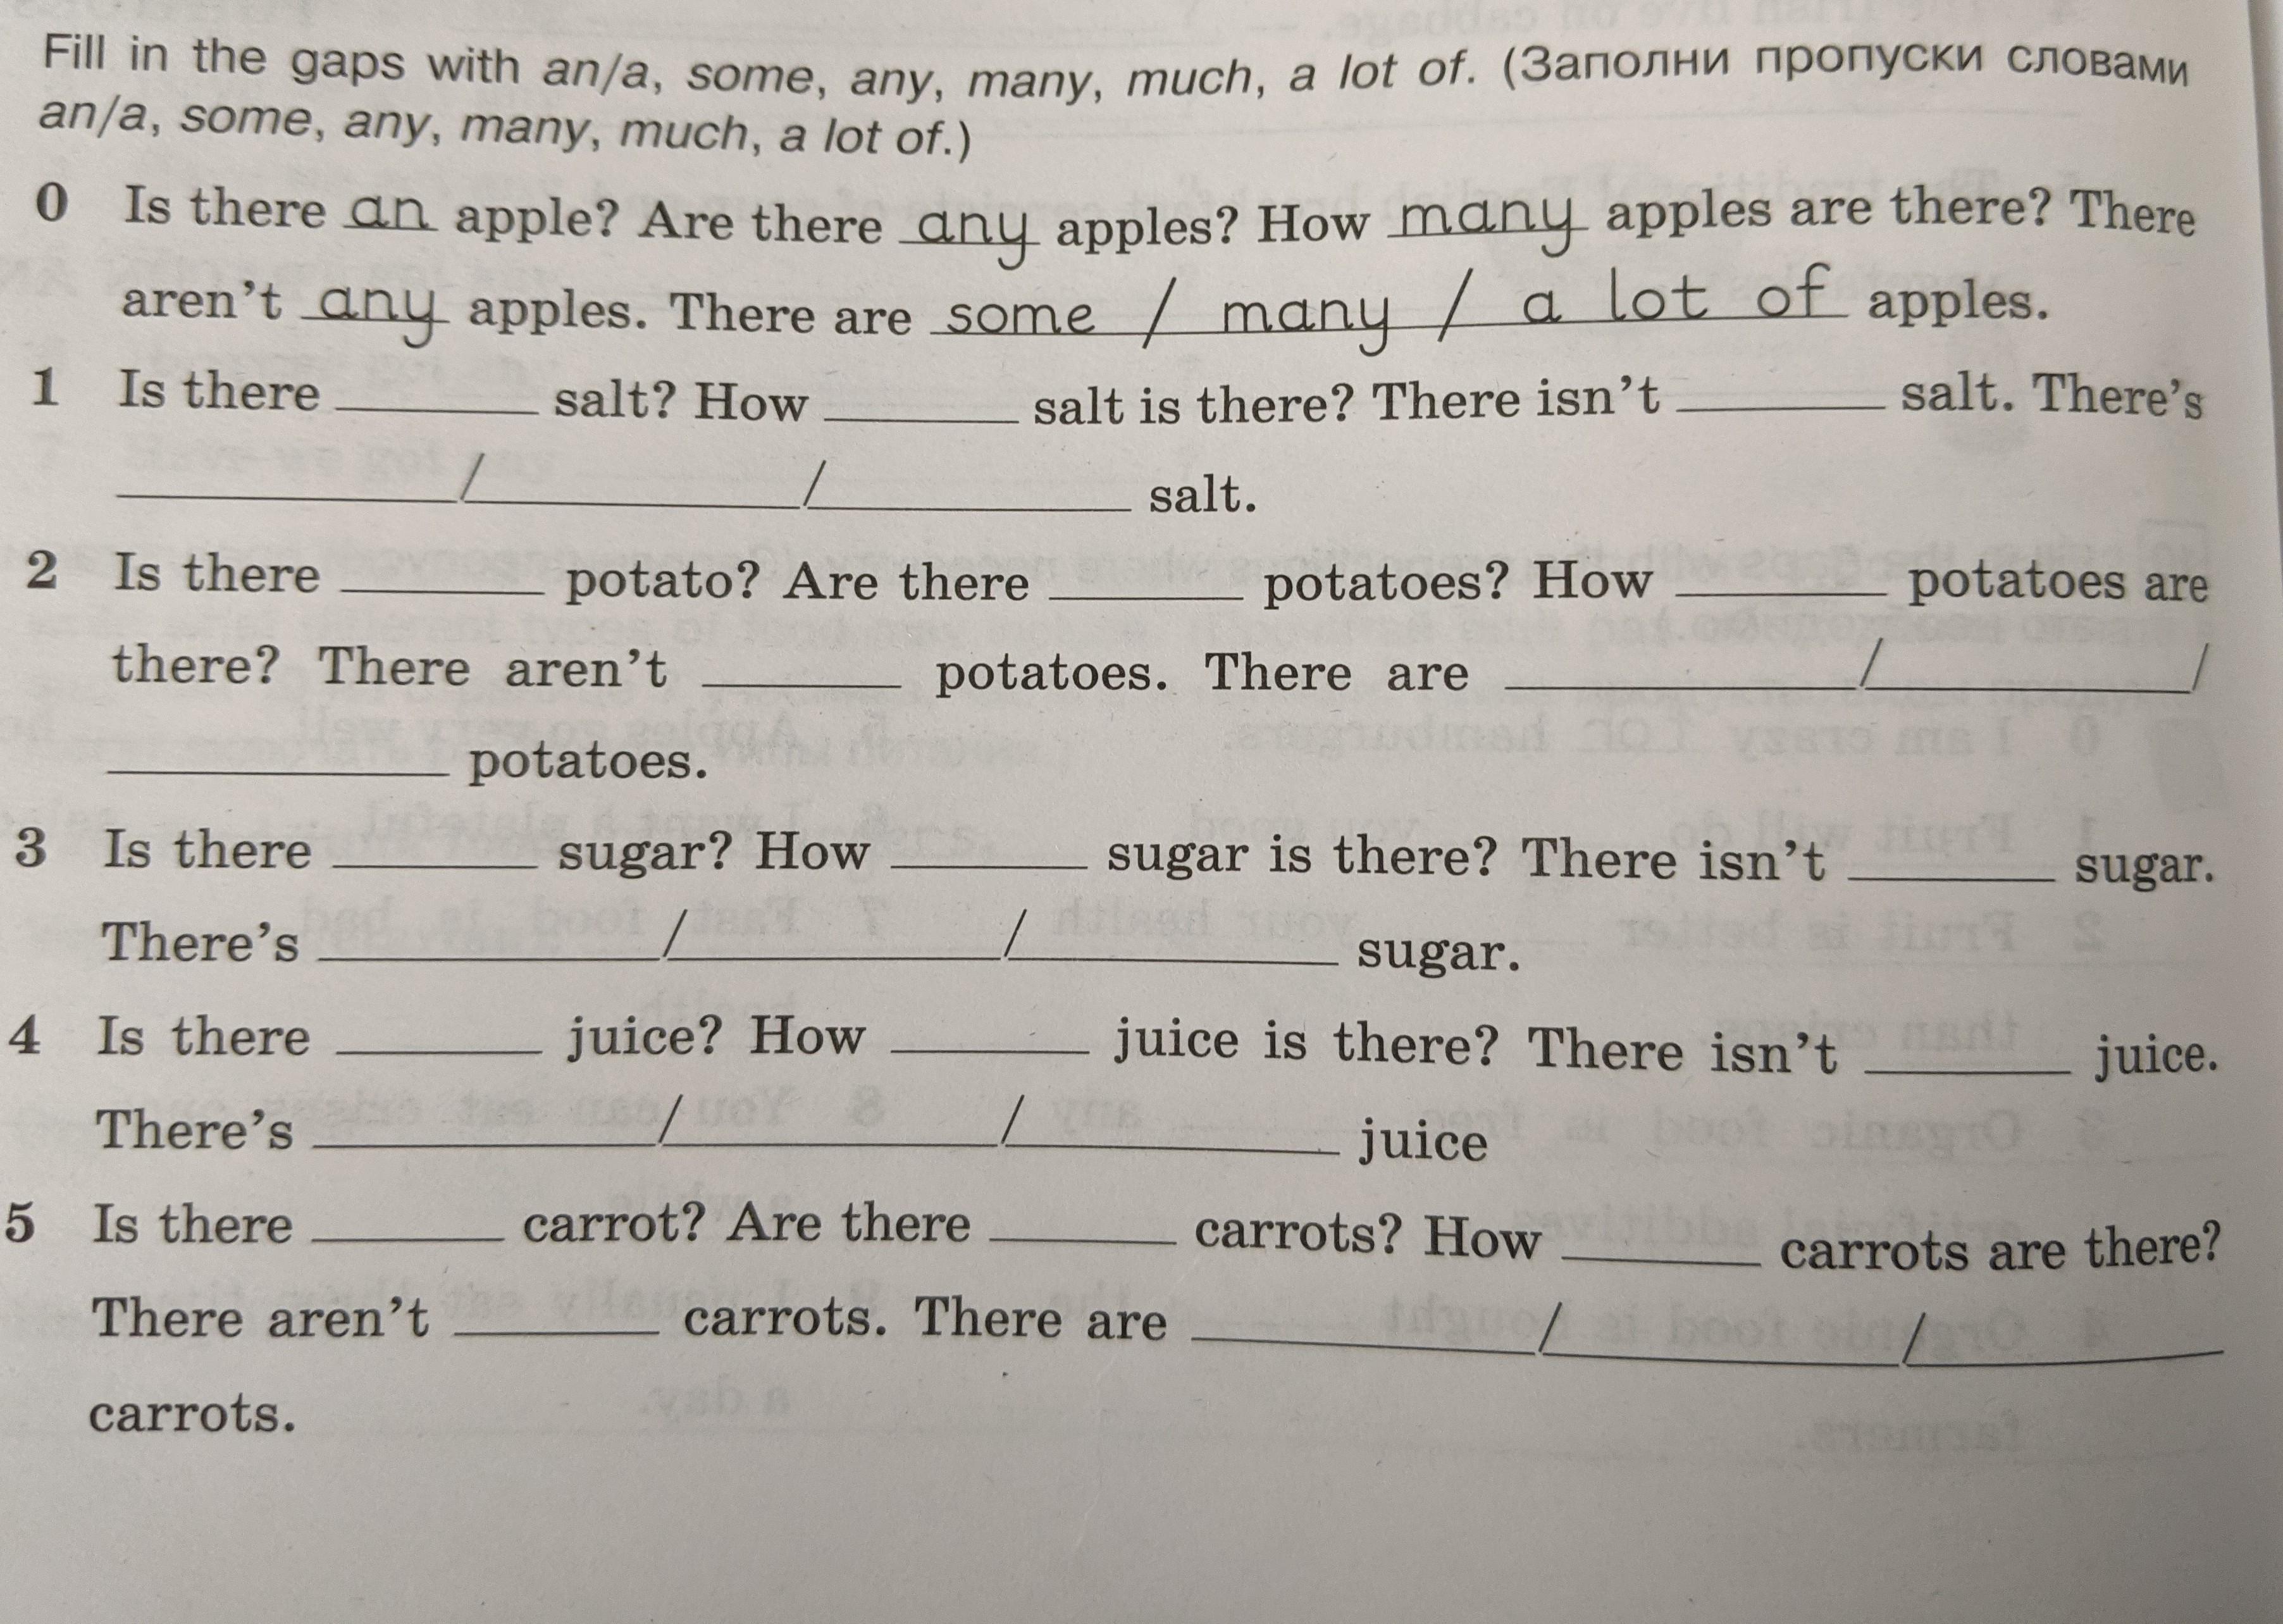 Fill in the gaps with an/a, some, any, many, much, a lot of. (Заполни пропуски словами
an/a, some, any, many, much, a lot of.)
0 Is there an apple? Are there any apples? How many apples are there? There
aren't any apples. There are some / many / a lot of apples.
1 Is there ______ salt? How ______ salt is there? There isn't ______ salt. There's
______/______/______ salt.
2 Is there ______ potato? Are there ______ potatoes? How ______ potatoes are
there? There aren't ______ potatoes. There are ______/______/
______ potatoes.
3 Is there ______ sugar? How ______ sugar is there? There isn't ______ sugar.
There's ______/______/______ sugar.
4 Is there ______ juice? How ______ juice is there? There isn't ______ juice.
There's ______/______/______ juice
5 Is there ______ carrot? Are there ______ carrots? How ______ carrots are there?
There aren't ______ carrots. There are ______/______/______
carrots.